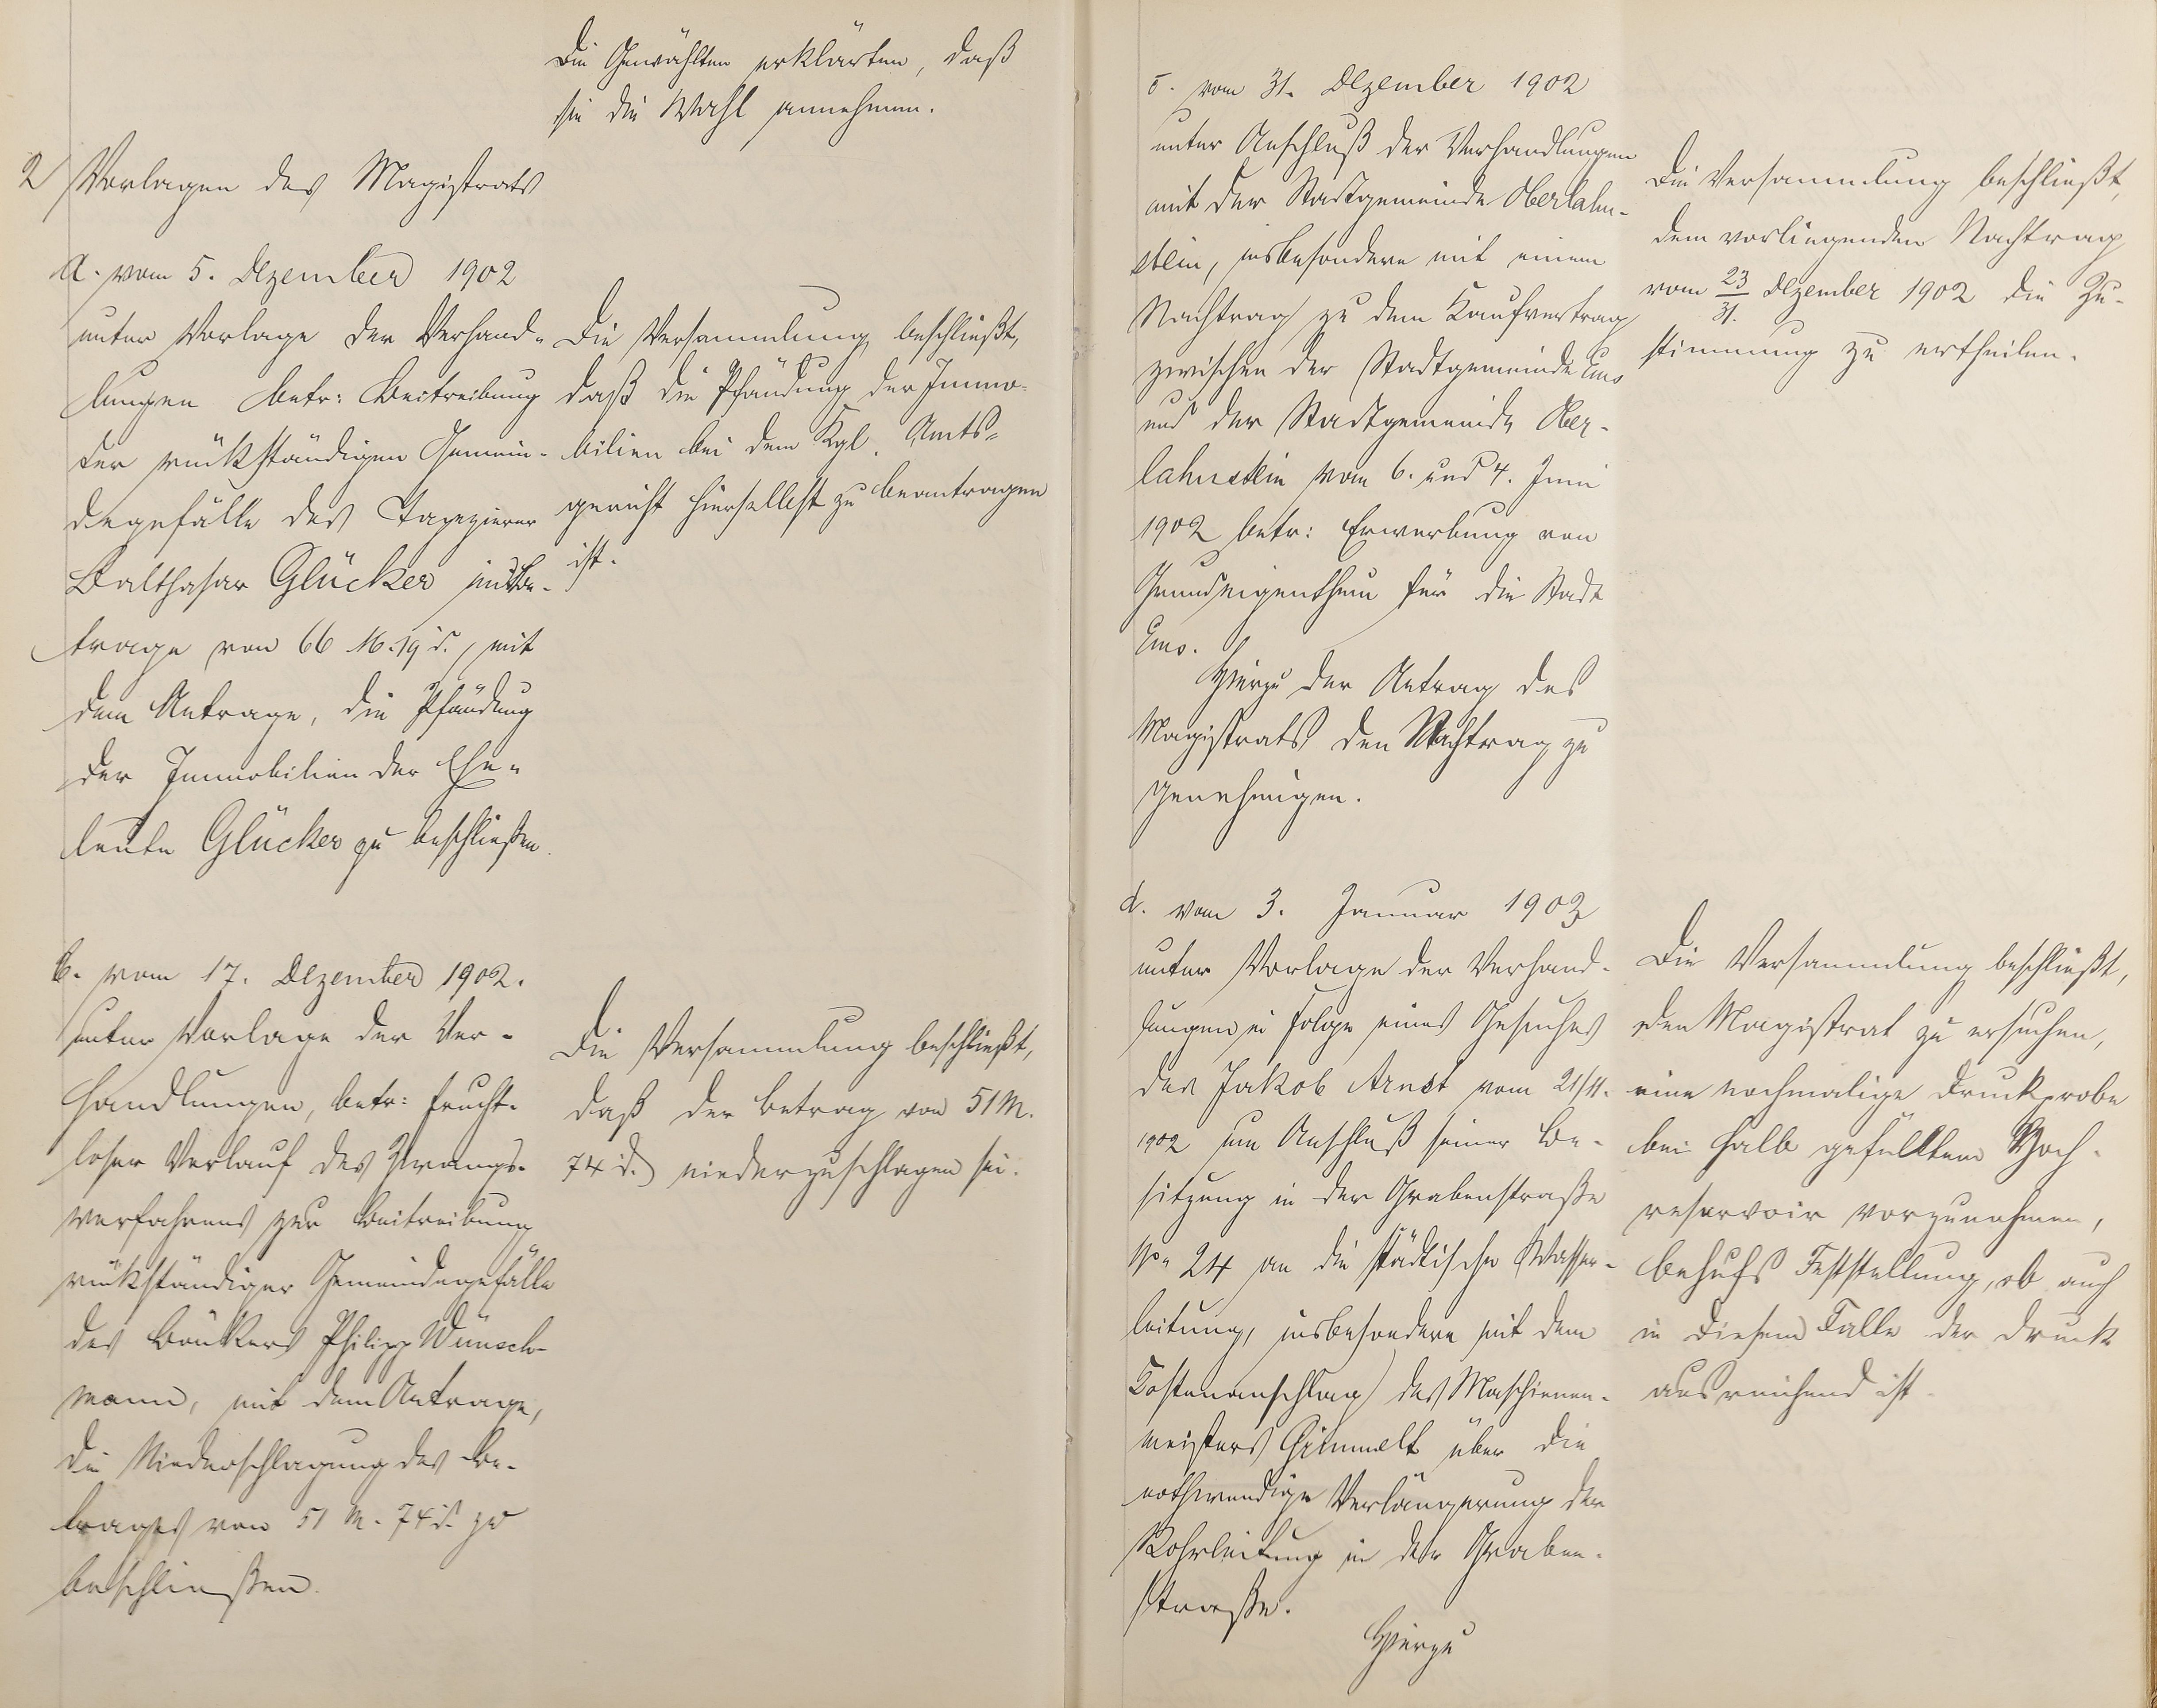 Die Gewählten erklärten, daß
sie die Wahl annehmen.
2 Vorlagen des Magistrats
a. vom 5. Dezember 1902
unter Vorlage der Verhand-
lungen betr: Beitreibung
der rückständigen Gemein-
degefälle des Tapezierer
Balthasar Glücker im Be-
trage von 66 M. 19 d., mit
dem Antrage, die Pfändung
der Immobilien der Ehe-
leute Glücker zu beschließen.
Die Versammlung beschließt,
daß die Pfändung der Immo-
bilien bei dem Kgl. Amts-
gericht hierselbst zu beantragen
ist.
b. vom 17. Dezember 1902.
unter Vorlage der Ver-
handlungen, betr: frucht-
loser Verlauf des Zwangs-
verfahrens zur Beitreibung
rückständiger Gemeindegefälle
des Bäckers Philipp Wünsch-
mann, mit dem Antrage,
die Niederschlagung des Be-
trages von 51 M. 74 d. zu
beschließen.
Die Versammlung beschließt,
daß der Betrag von 51 M.
74 d. niederzuschlagen sei.
c. vom 31. Dezember 1902
unter Anschluß der Verhandlungen
mit der Stadtgemeinde Oberlahn-
stein, insbesondere mit einem
Nachtrag zu dem Kaufvertrag
zwischen der Stadtgemeinde Ems
und der Stadtgemeinde Ober-
lahnstein vom 6. und 4. Juni
1902 betr: Erwerbung von
Grundeigenthum für die Stadt
Ems.
Hierzu der Antrag des
Magistrats den Nachtrag zu
genehmigen.
Die Versammlung beschließt,
dem vorliegenden Nachtrag
vom 23/31. Dezember 1902 die Zu-
stimmung zu ertheilen.
d. vom 3. Januar 1903
unter Vorlage der Verhand-
lungen in Folge eines Gesuches
des Jakob Arnst vom 21/11.
1902 um Anschluß seiner Be-
sitzung in der Grabenstraße
No 24 an die städtische Wasser-
leitung, insbesondere mit dem
Kostenanschlag des Maschienen-
meisters Gimmelt über die
nothwendige Verlängerung der
Rohrleitung in der Graben-
straße.
Hierzu
Die Versammlung beschließt,
den Magistrat zu ersuchen,
eine nochmalige Druckprobe
bei halb gefülltem Hoch-
reservoir vorzunehmen,
behufs Feststellung, ob auch
in diesem Falle der Druck
ausreichend ist.